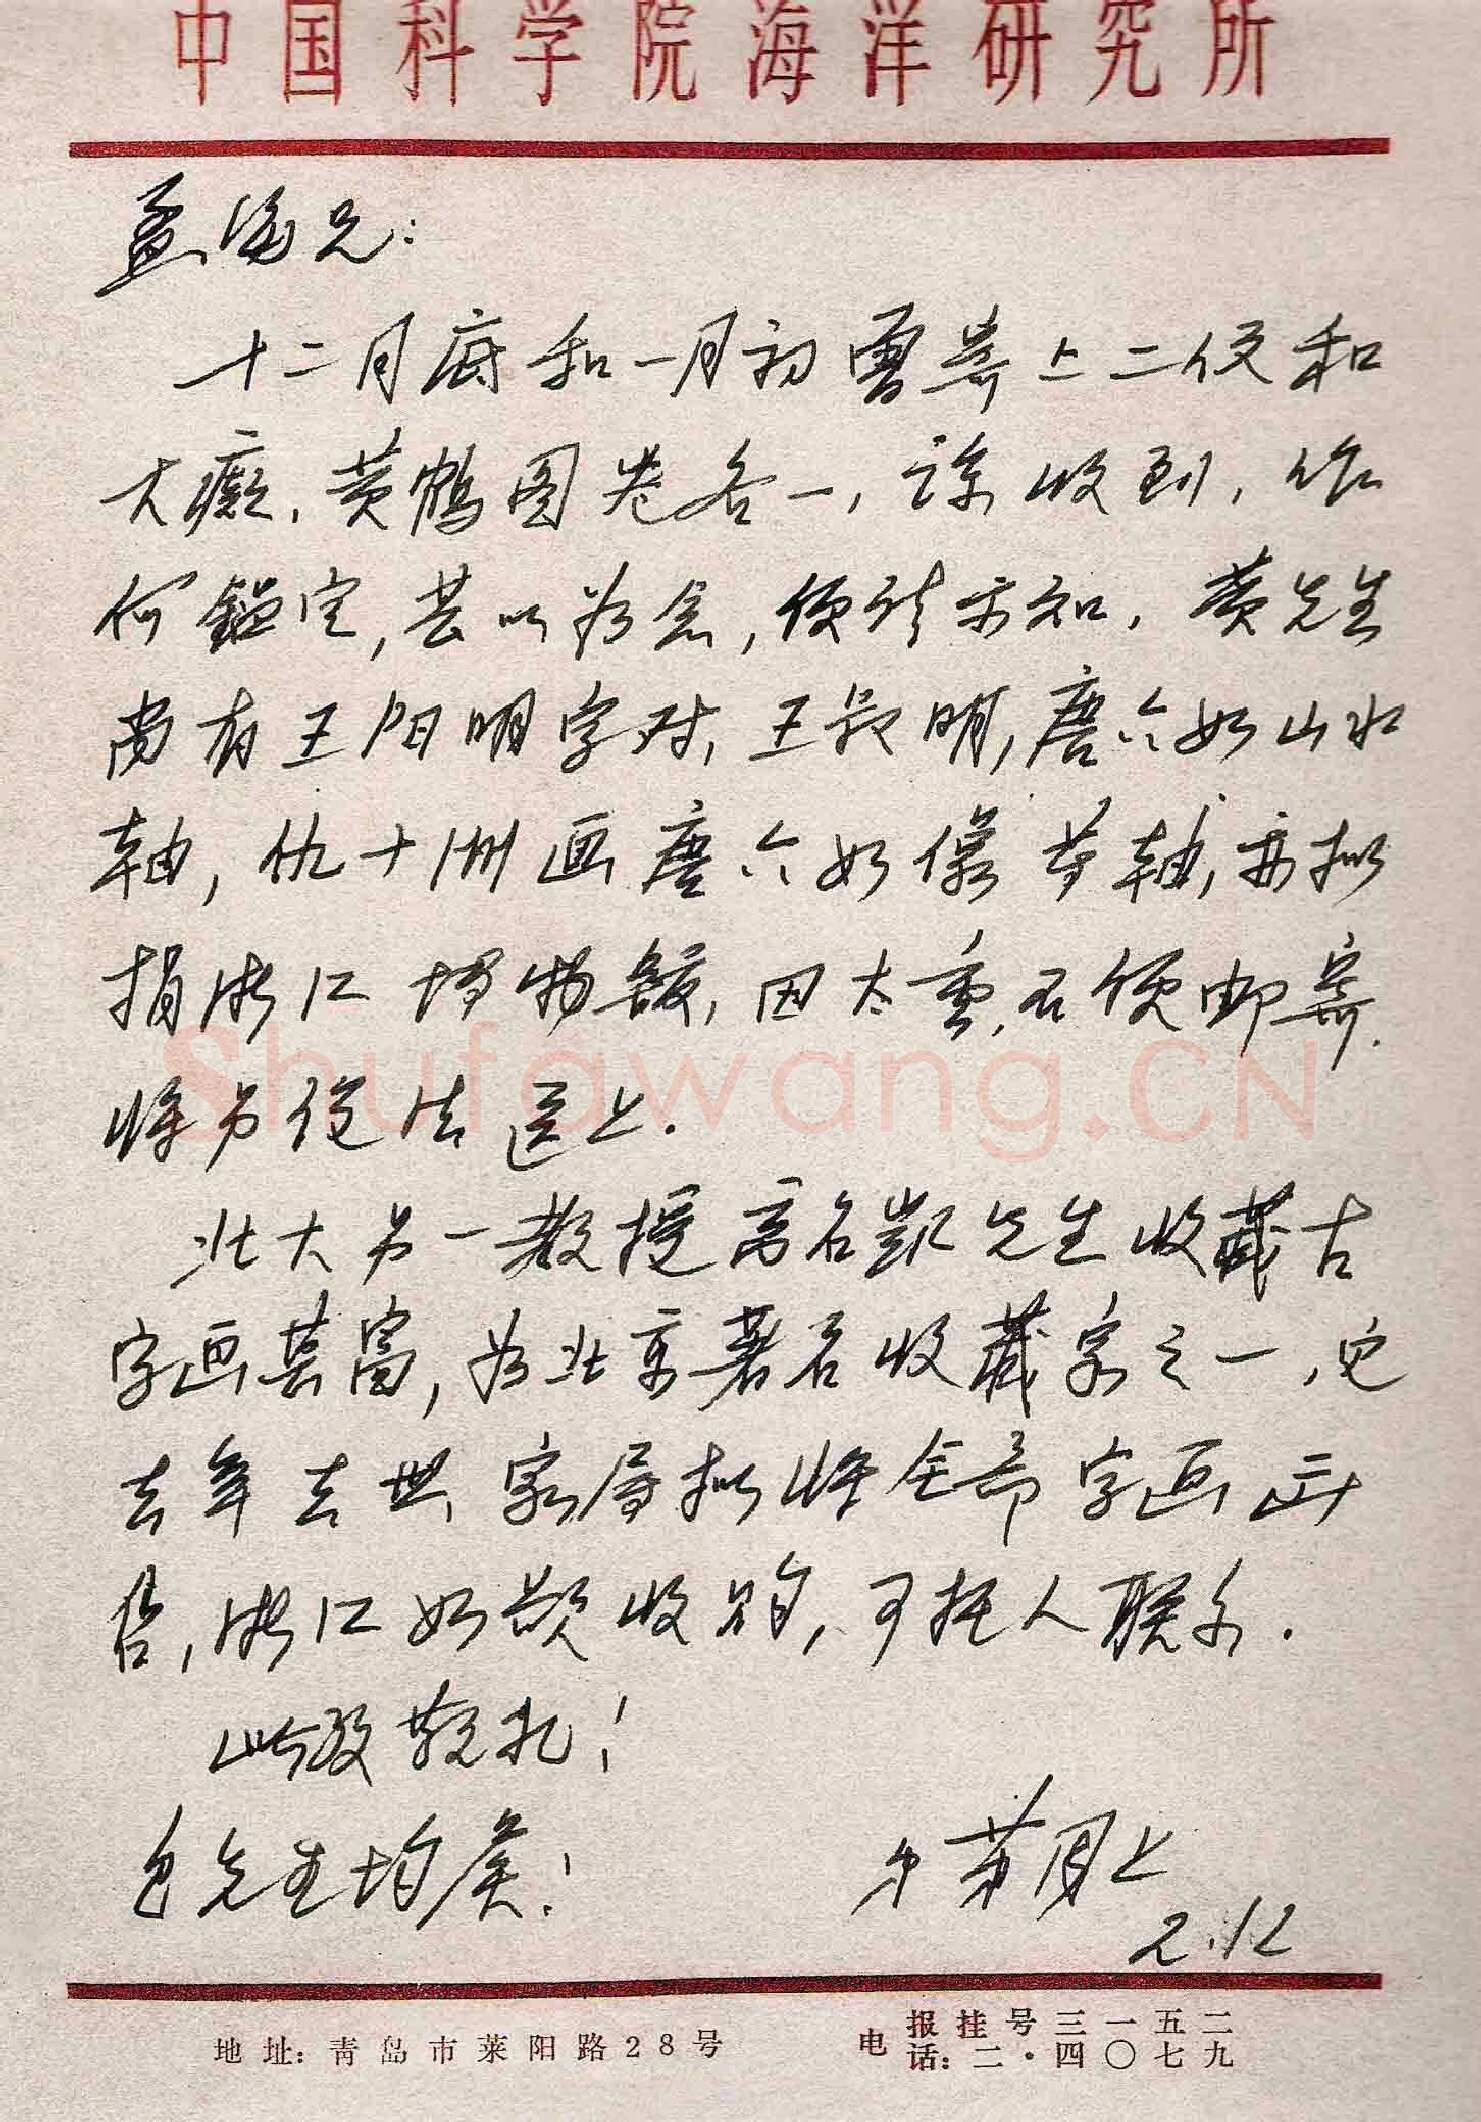 中国科学院海洋研究所
孟海兄：
十二月底和一月初曾寄上二信和
大癡、黄鹤图卷各一，谅收到，如
何鉴定，甚以为念，便请示知。黄先生
尚有王阳明字对，王叔明，唐六如山水
轴，仇十洲画唐六如像等轴，亦拟
捐浙江博物馆，因太重，不便邮寄．
将另设法送上．
北大另一教授高名凯先生收藏古
字画甚富，为北京著名收藏家之一，
去年去世，家属拟将全部字画出
售，浙江如欲收购，可托人联系．
此致敬礼！
包先生均候！
弟茀周上
2.12
地址：青岛市莱阳路28号
电报挂号三一五二
电话：二·四〇七九
Shufawang.CN